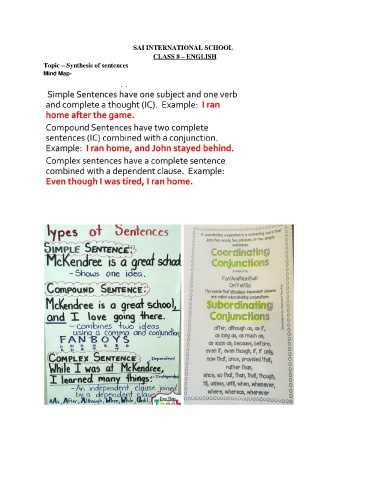 SAI INTERNATIONAL SCHOOL
CLASS 8 – ENGLISH
Topic – Synthesis of sentences
Mind Map-
Simple Sentences have one subject and one verb
and complete a thought (IC). Example: I ran
home after the game.
Compound Sentences have two complete
sentences (IC) combined with a conjunction.
Example: I ran home, and John stayed behind.
Complex sentences have a complete sentence
combined with a dependent clause. Example:
Even though I was tired, I ran home.
Types of Sentences
SIMPLE SENTENCE:
McKendree is a great school
- Shows one idea.
COMPOUND SENTENCE:
McKendree is a great school,
and I love going there.
- combines two ideas
using a comma and conjunction
FANBOYS
COMPLEX SENTENCE
Dependent
While I was at McKendree,
I learned many things.
Independent
- An independent clause joined
by a dependent clause
As, After, Although, When, While, Until,
A coordinating conjunction is a connecting word that
joins two words, two phrases, or two simple
sentences.
Coordinating
Conjunctions
For/And/Nor/But/
Or/Yet/So
The words that introduce dependent clauses
are called subordinating conjunctions
Subordinating
Conjunctions
after, although, as, if,
as long as, as much as,
as soon as, because, before,
even if, even though, if, if only,
now that, once, provided that,
rather than,
since, so that, than, that, though,
till, unless, until, when, whenever,
where, whereas, wherever